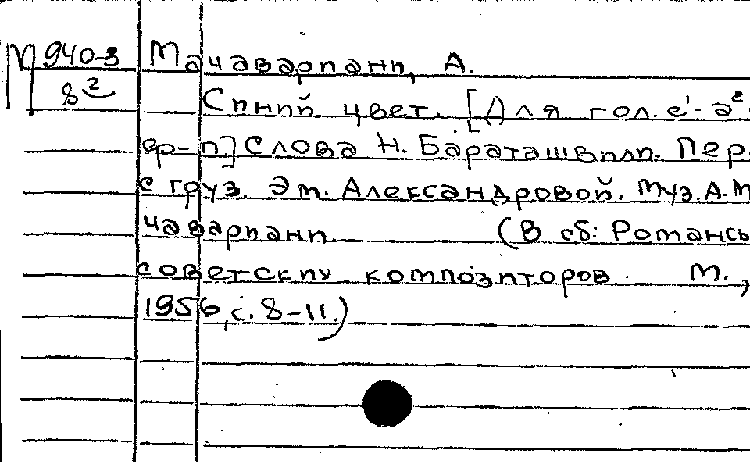 М 940-3 Мачавариани, А.
8² Синий цвет. [Для гол. e¹- a²
ф-п] Слова Н. Бараташвили. Пер
с груз. Эм. Александровой. Муз. А. М
чавариани (В сб: Романсы
советских композиторов М.,
1956, с. 8-11.)